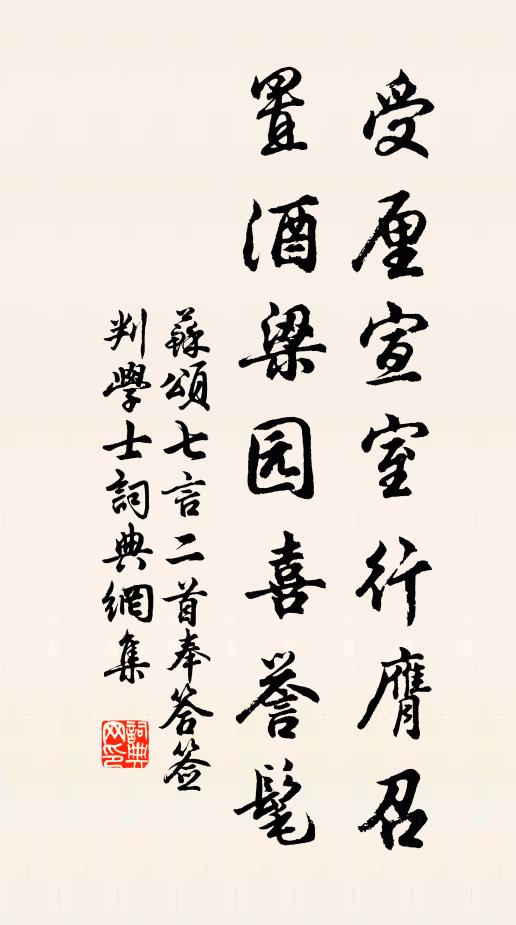 受厘宣室行膺召
置酒梁园喜誉髦
蘇頌七言二首奉答签
判學士詞典網集
詞典
网印